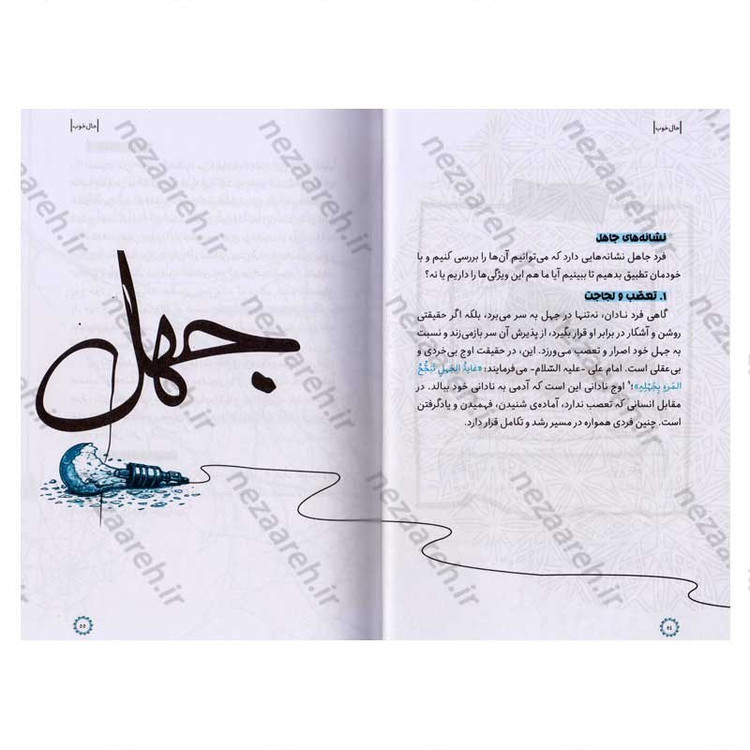 |حال خوب|
نشانه‌های جاهل
فرد جاهل نشانه‌هایی دارد که می‌توانیم آن‌ها را بررسی کنیم و با
خودمان تطبیق بدهیم تا ببینیم آیا ما هم این ویژگی‌ها را داریم یا نه؟
۱. تعصّب و لجاجت
گاهی فرد نادان، نه‌تنها در جهل به سر می‌برد، بلکه اگر حقیقتی
روشن و آشکار در برابر او قرار بگیرد، از پذیرش آن سر بازمی‌زند و نسبت
به جهل خود اصرار و تعصب می‌ورزد. این، در حقیقت اوج بی‌خردی و
بی‌عقلی است. امام علی -علیه السّلام- می‌فرمایند: «غایَةُ الجَهلِ تَبَجُّحُ
المَرءِ بِجَهلِهِ»؛۱ اوج نادانی این است که آدمی به نادانی خود ببالد. در
مقابل انسانی که تعصب ندارد، آماده‌ی شنیدن، فهمیدن و یادگرفتن
است. چنین فردی همواره در مسیر رشد و تکامل قرار دارد.
۵۴
|حال خوب|
جهل
۵۵
nezaareh.ir
nezaareh.ir
nezaareh.ir
nezaareh.ir
nezaareh.ir
nezaareh.ir
nezaareh.ir
nezaareh.ir